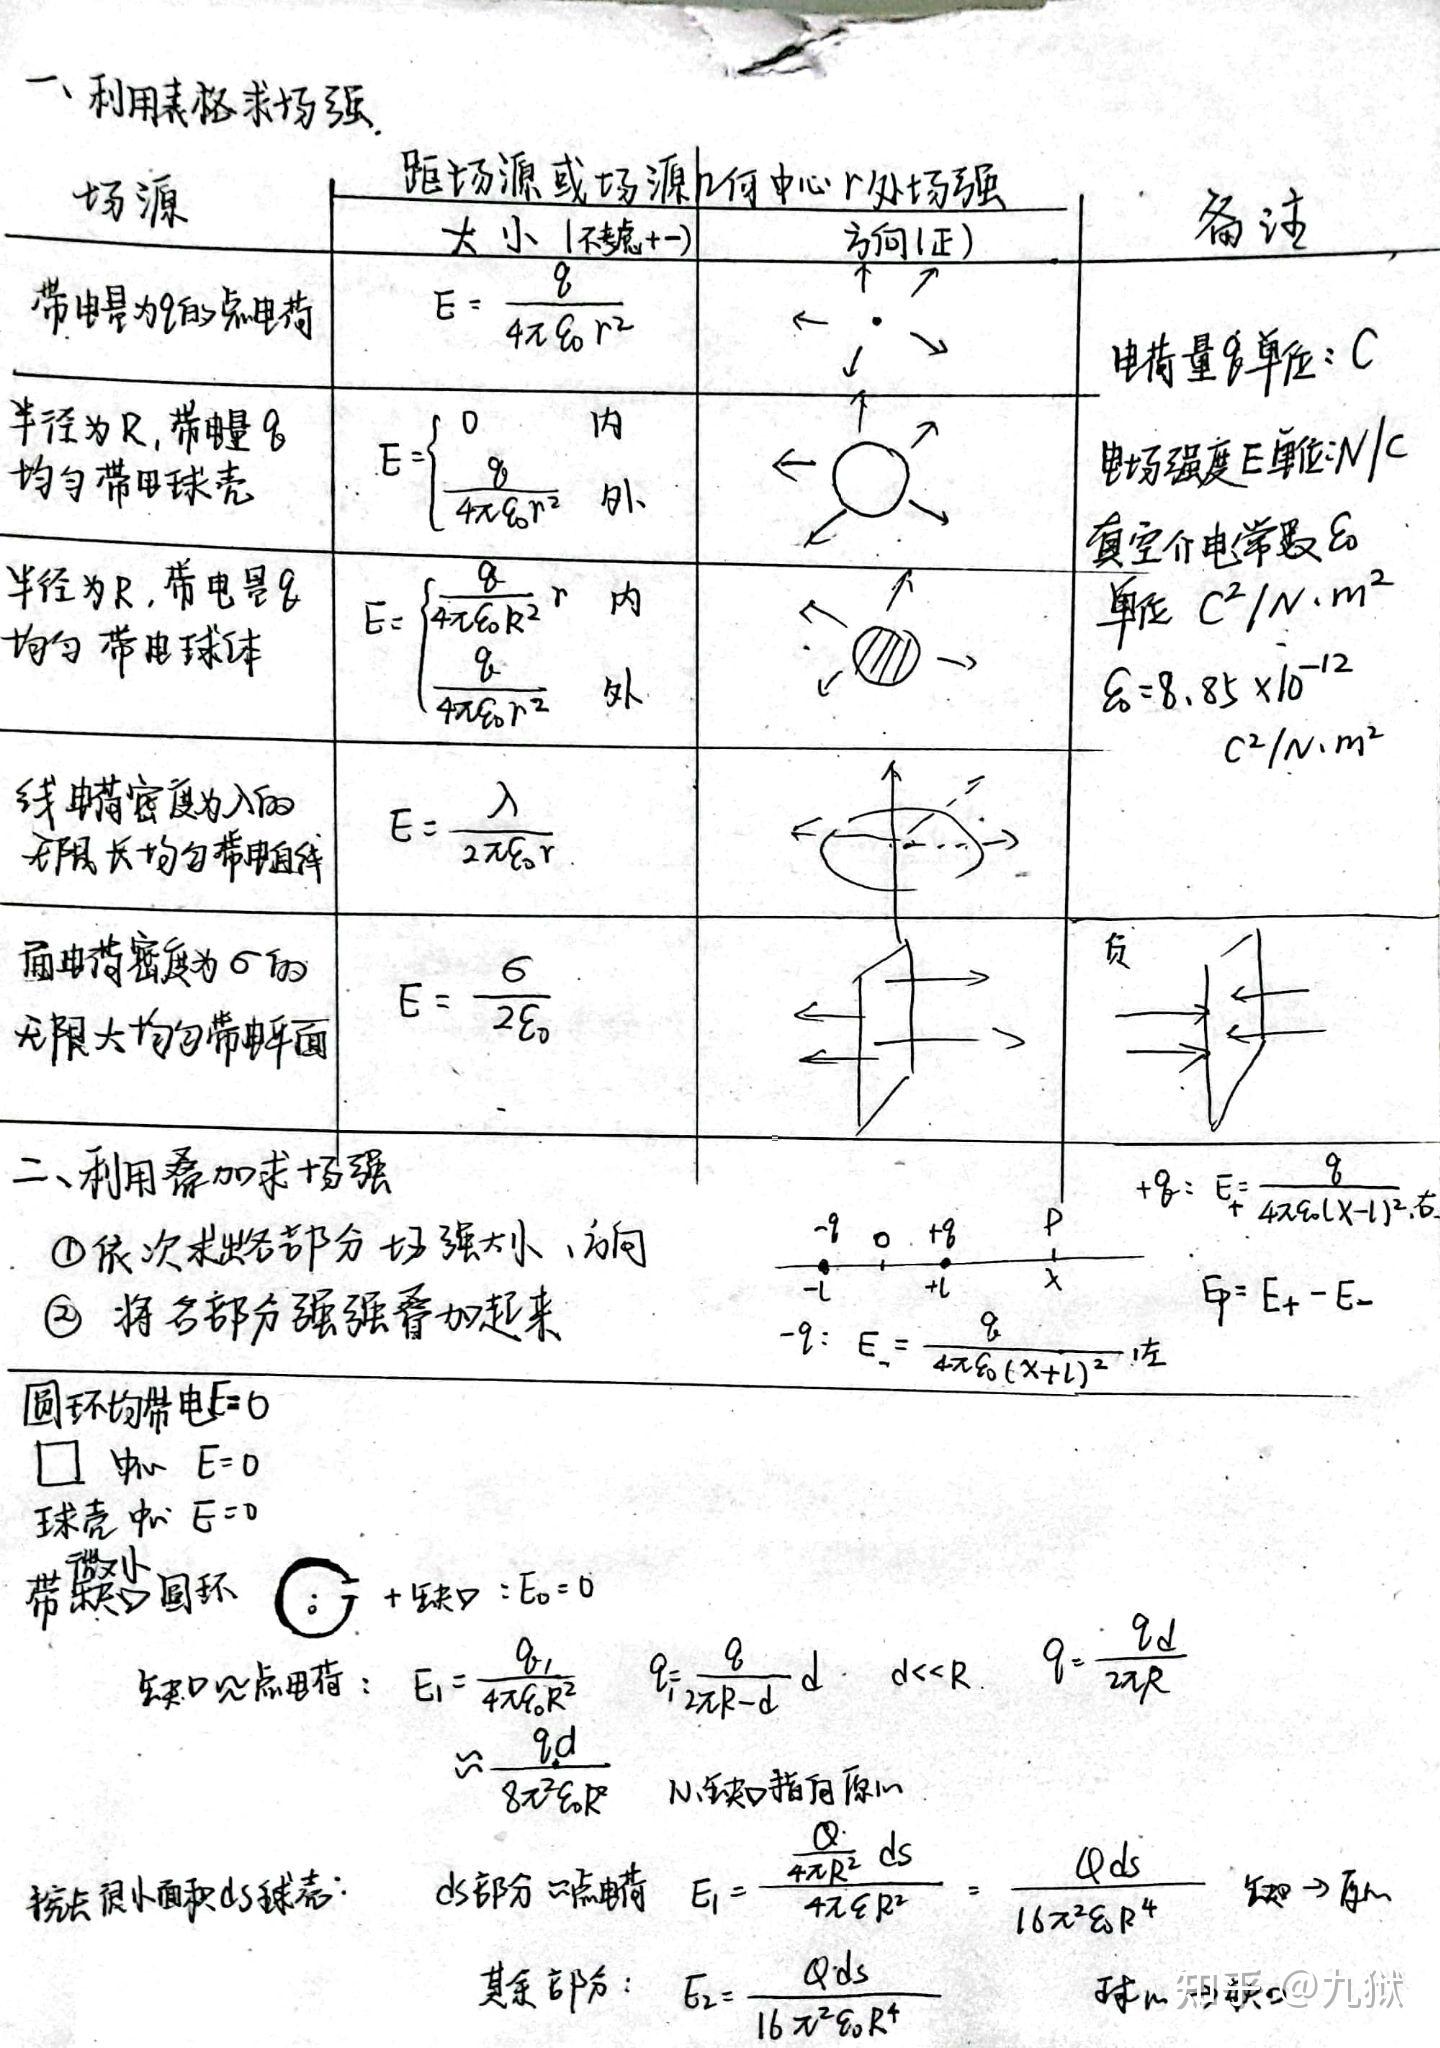 一、利用表格求场强.
场源
距场源或场源几何中心r处场强
备注
大小(不考虑+-)
方向(正)
带电量为q的点电荷
E = q/4πε₀r²
电荷量q单位: C
半径为R,带电量q
均匀带电球壳
E = { 0 内
q/4πε₀r² 外
电场强度E单位:N/C
真空介电常数ε₀
单位 C²/N·m²
ε₀=8.85×10⁻¹²
C²/N·m²
半径为R,带电量q
均匀带电球体
E = { q/4πε₀R² r 内
q/4πε₀r² 外
线电荷密度为λ的
无限长均匀带电直线
E = λ/2πε₀r
面电荷密度为σ的
无限大均匀带电平面
E = σ/2ε₀
负
二、利用叠加求场强
①依次求出各部分场强大小、方向
②将各部分强强叠加起来
-q o +q P
-l +l x
+q: E₊= q/4πε₀(x-l)² ,右
Ep = E₊ - E₋
-q: E₋ = q/4πε₀(x+l)² ,左
圆环均带电E=0
□ 中心 E=0
球壳中心 E=0
带微小缺口圆环 +缺口:E₀=0
缺口≈点电荷: E₁ = q₁/4πε₀R² q₁= q/2πR-d d d<<R. q = qd/2πR
≈ qd/8π²ε₀R² 从缺口指向原心
挖去很小面积ds球壳: ds部分≈点电荷 E₁ = Q/4πR² ds/4πεR² = Qds/16π²ε₀R⁴ 缺口→原心
其余部分: E₂ = Qds/16π²ε₀R⁴ 球心
知乎 @九狱